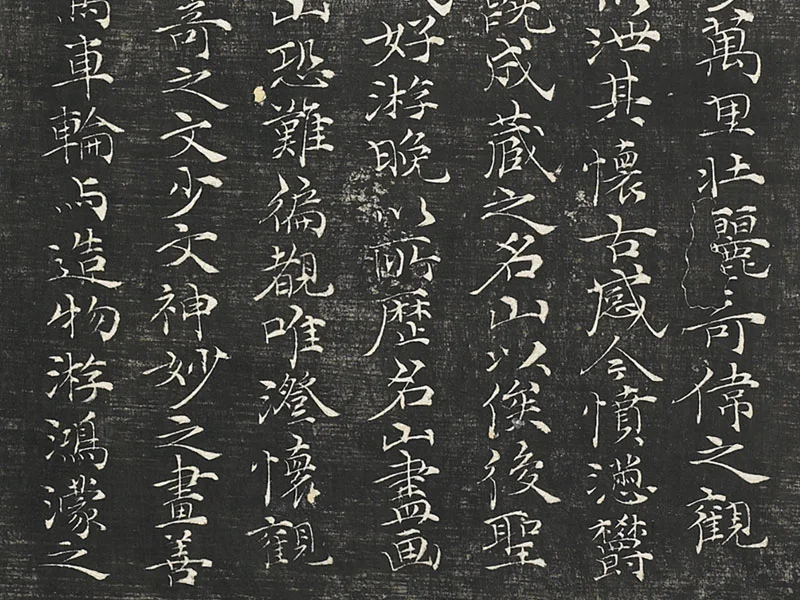 萬里壯麗奇偉之觀
泄其懷古感今憤懣鬱
既成藏之名山以俟後聖
好游晚以所歷名山畫画
山恐難徧覩唯澄懷觀
奇之文少文神妙之畫善
馬車輪与造物游鴻濛之